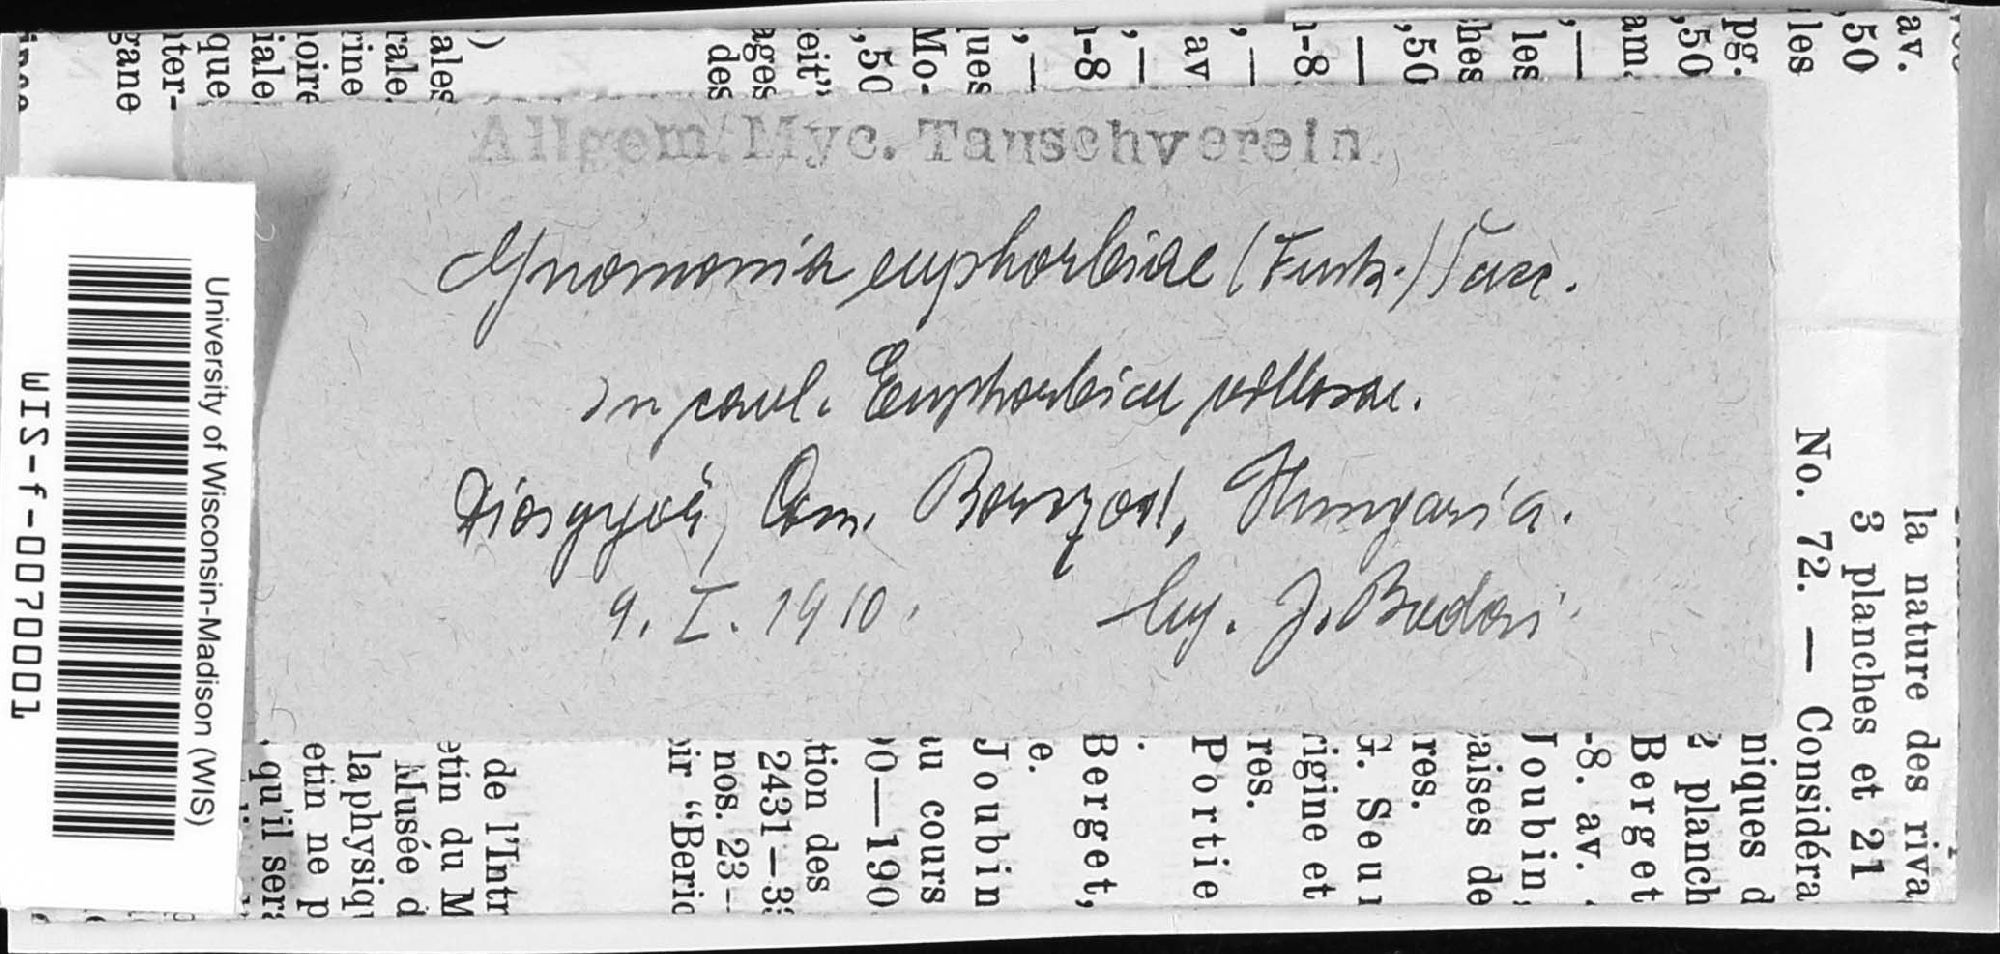 Allgem. Myc. Tauschverein.
Gnomonia euphorbiae (Fuck.) Sacc.
In caul. Euphorbiae villosae.
Diósgyőr, Com. Borszod, Hungaria.
9. I. 1910. leg. J. Budai.
University of Wisconsin-Madison (WIS)
WIS-f-0070001
gane
nter-
que
iale
oire
rine
rale.
ales
)
des
ages
eit"
,50
Mo-
ques
,—
n-8
,—
av
,—
n-8
—
,50
ches
les
,—
am.
,50
pg.
les
,50
av.
la nature des riva
3 planches et 21
No. 72. — Considéra
niques d
2 planch
Berget
-8. av.
Joubin,
aises de
res.
G. Seur
rigine et
res.
Portie
Berget,
e.
Joubin
au cours
00—190
tion des
2431—3
nos. 23—
oir "Beric
de l'Intr
etin du M
Musée d
la physiq
etin ne p
qu'il sera